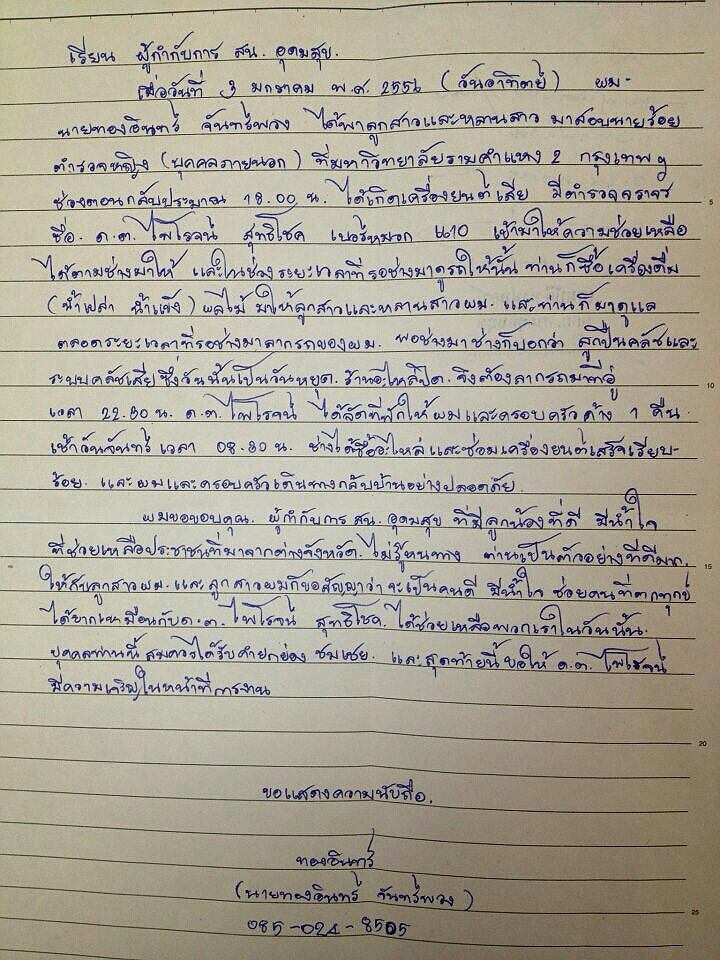 เรียน ผู้กำกับการ สน. อุดมสุข.
เมื่อวันที่ 3 มกราคม พ.ศ. 2556 (วันอาทิตย์) ผม-
นายทองอินทร์ จันทร์พวง ได้พาลูกสาวและหลานสาว มาสอบนายร้อย
ตำรวจหญิง (บุคคลภายนอก) ที่มหาวิทยาลัยรามคำแหง 2 กรุงเทพฯ
ช่วงตอนกลับประมาณ 18.00 น. ได้เกิดเครื่องยนต์เสีย มีตำรวจจราจร
ชื่อ. ด.ต. ไพโรจน์ สุทธิโชค เบอร์หมวก 4210 เข้ามาให้ความช่วยเหลือ
ได้ตามช่างมาให้ และในช่วงระยะเวลาที่รอช่างมาดูรถให้นั้น ท่านก็ซื้อเครื่องดื่ม
(น้ำเปล่า น้ำแข็ง) ผลไม้ มาให้ลูกสาวและหลานสาวผม. และท่านก็มาดูแล
ตลอดระยะเวลาที่รอช่างมาลากรถของผม. พอช่างมาช่างก็บอกว่า ลูกปืนคลัชและ
ระบบคลัชเสียซึ่งวันนั้นเป็นวันหยุด. ร้านอะไหล่ปิด. จึงต้องลากรถมาที่อู่
เวลา 22.30 น. ด.ต. ไพโรจน์ ได้จัดที่พักให้ผมและครอบครัวค้าง 1 คืน.
เช้าวันจันทร์เวลา 08.30 น. ช่างได้ซื้ออะไหล่และซ่อมเครื่องยนต์เสร็จเรียบ-
ร้อย. และผมและครอบครัวเดินทางกลับบ้านอย่างปลอดภัย.
ผมขอขอบคุณ. ผู้กำกับการ สน. อุดมสุข ที่มีลูกน้องที่ดี มีน้ำใจ
ที่ช่วยเหลือประชาชนที่มาจากต่างจังหวัด. ไม่รู้หนทาง ท่านเป็นตัวอย่างที่ดีมาก.
ให้กับลูกสาวผม. และลูกสาวผมก็ขอสัญญาว่า จะเป็นคนดี มีน้ำใจ ช่วยคนที่ตกทุกข์
ได้ยากเหมือนกับด.ต. ไพโรจน์ สุทธิโชค. ได้ช่วยเหลือพวกเราในวันนั้น.
บุคคลท่านนี้ สมควรได้รับคำยกย่อง ชมเชย. และสุดท้ายนี้ ขอให้ ด.ต. ไพโรจน์
มีความเจริญในหน้าที่การงาน
ขอแสดงความนับถือ.
ทองอินทร์
(นายทองอินทร์ จันทร์พวง)
085-024-8505
5
10
15
20
25